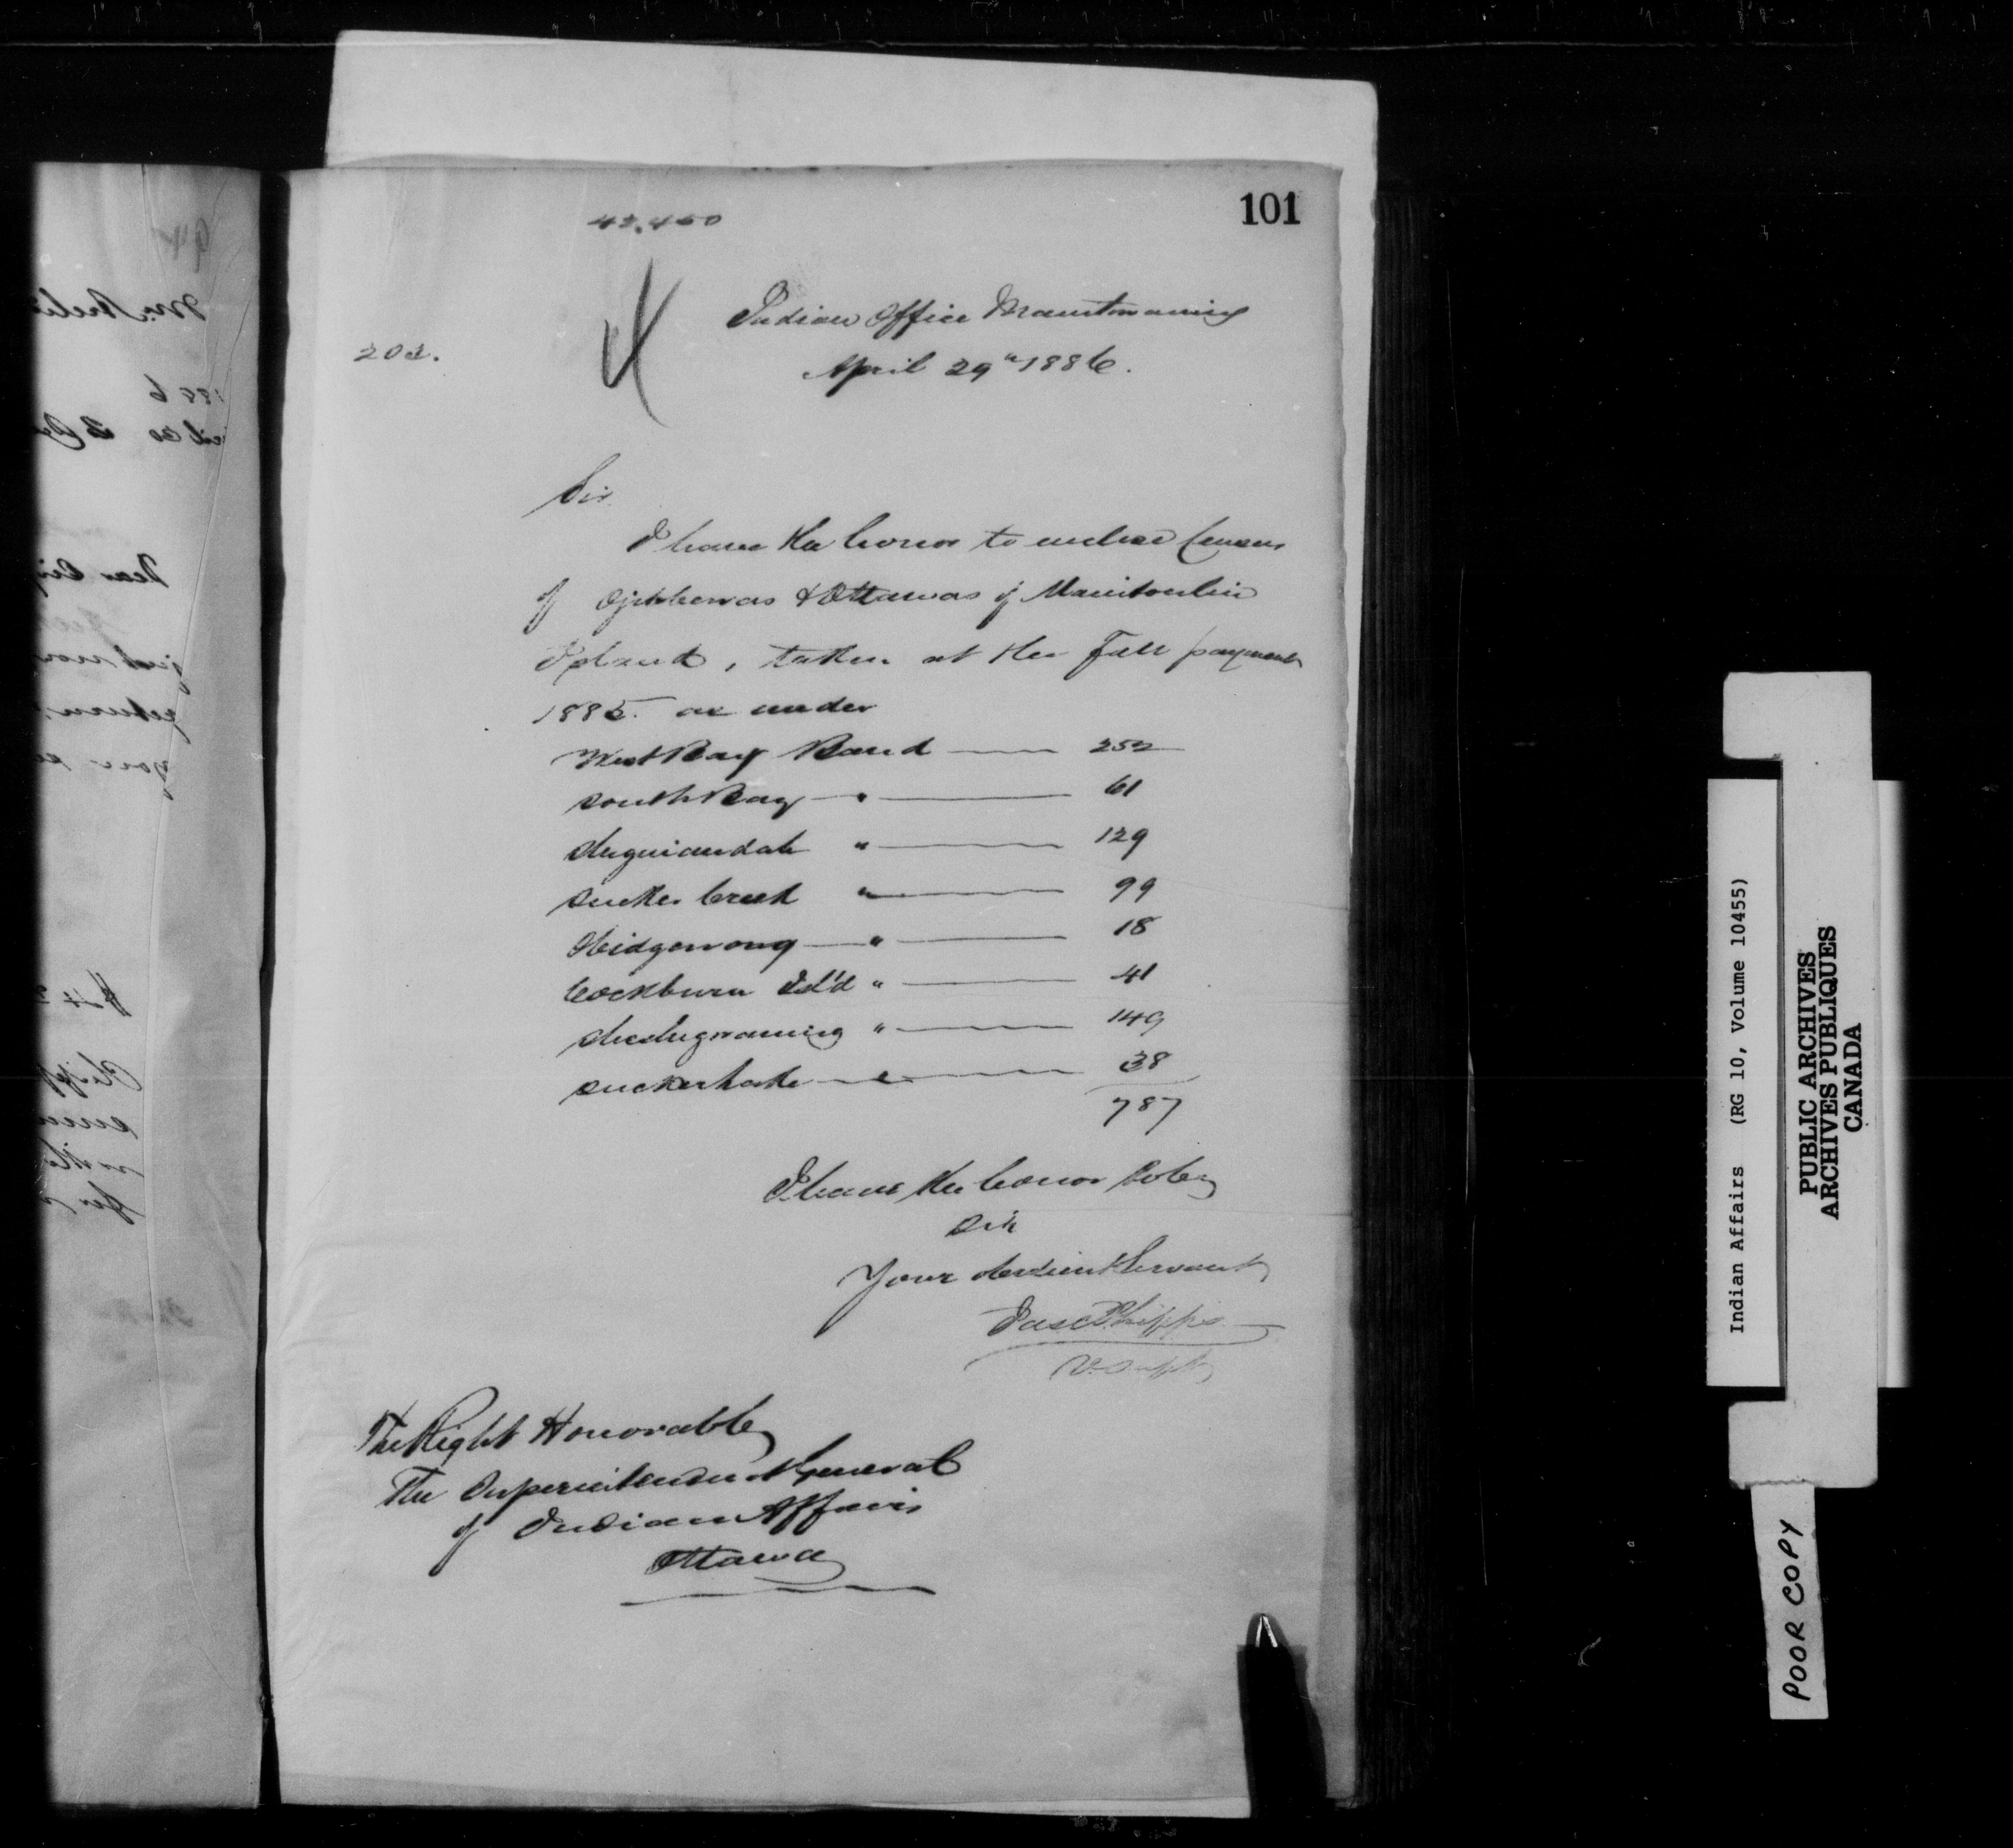 101
43,450
Indian Office Manitowaning
202.
April 29th 1886.
Sir
I have the honor to enclose Census
of Ojibbewas & Ottawas of Manitoulin
Island, taken at the Fall payments
1885. as under
West Bay Band — 252
South Bay — " — 61
Sheguiandah " — 129
Sucker Creek " — 99
Obidgewong — " — 18
Cockburn Isl'd " — 41
Sheshegwaning " — 149
Sucker Lake — " — 38
787
I have the honor to be
Sir
Your obedient Servant
Jas C Phipps
V. Supt
The Right Honorable
The Superintendent General
of Indian Affairs
Ottawa
Indian Affairs (RG 10, Volume 10455)
PUBLIC ARCHIVES
ARCHIVES PUBLIQUES
CANADA
POOR COPY